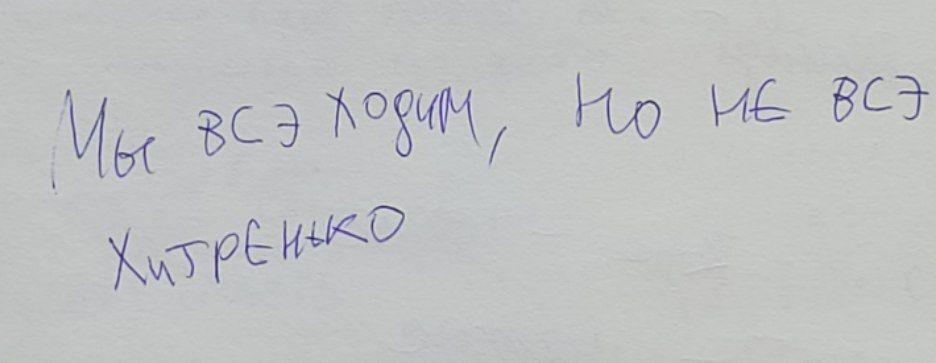 Мы всэ ходим, но не всэ
хитренько